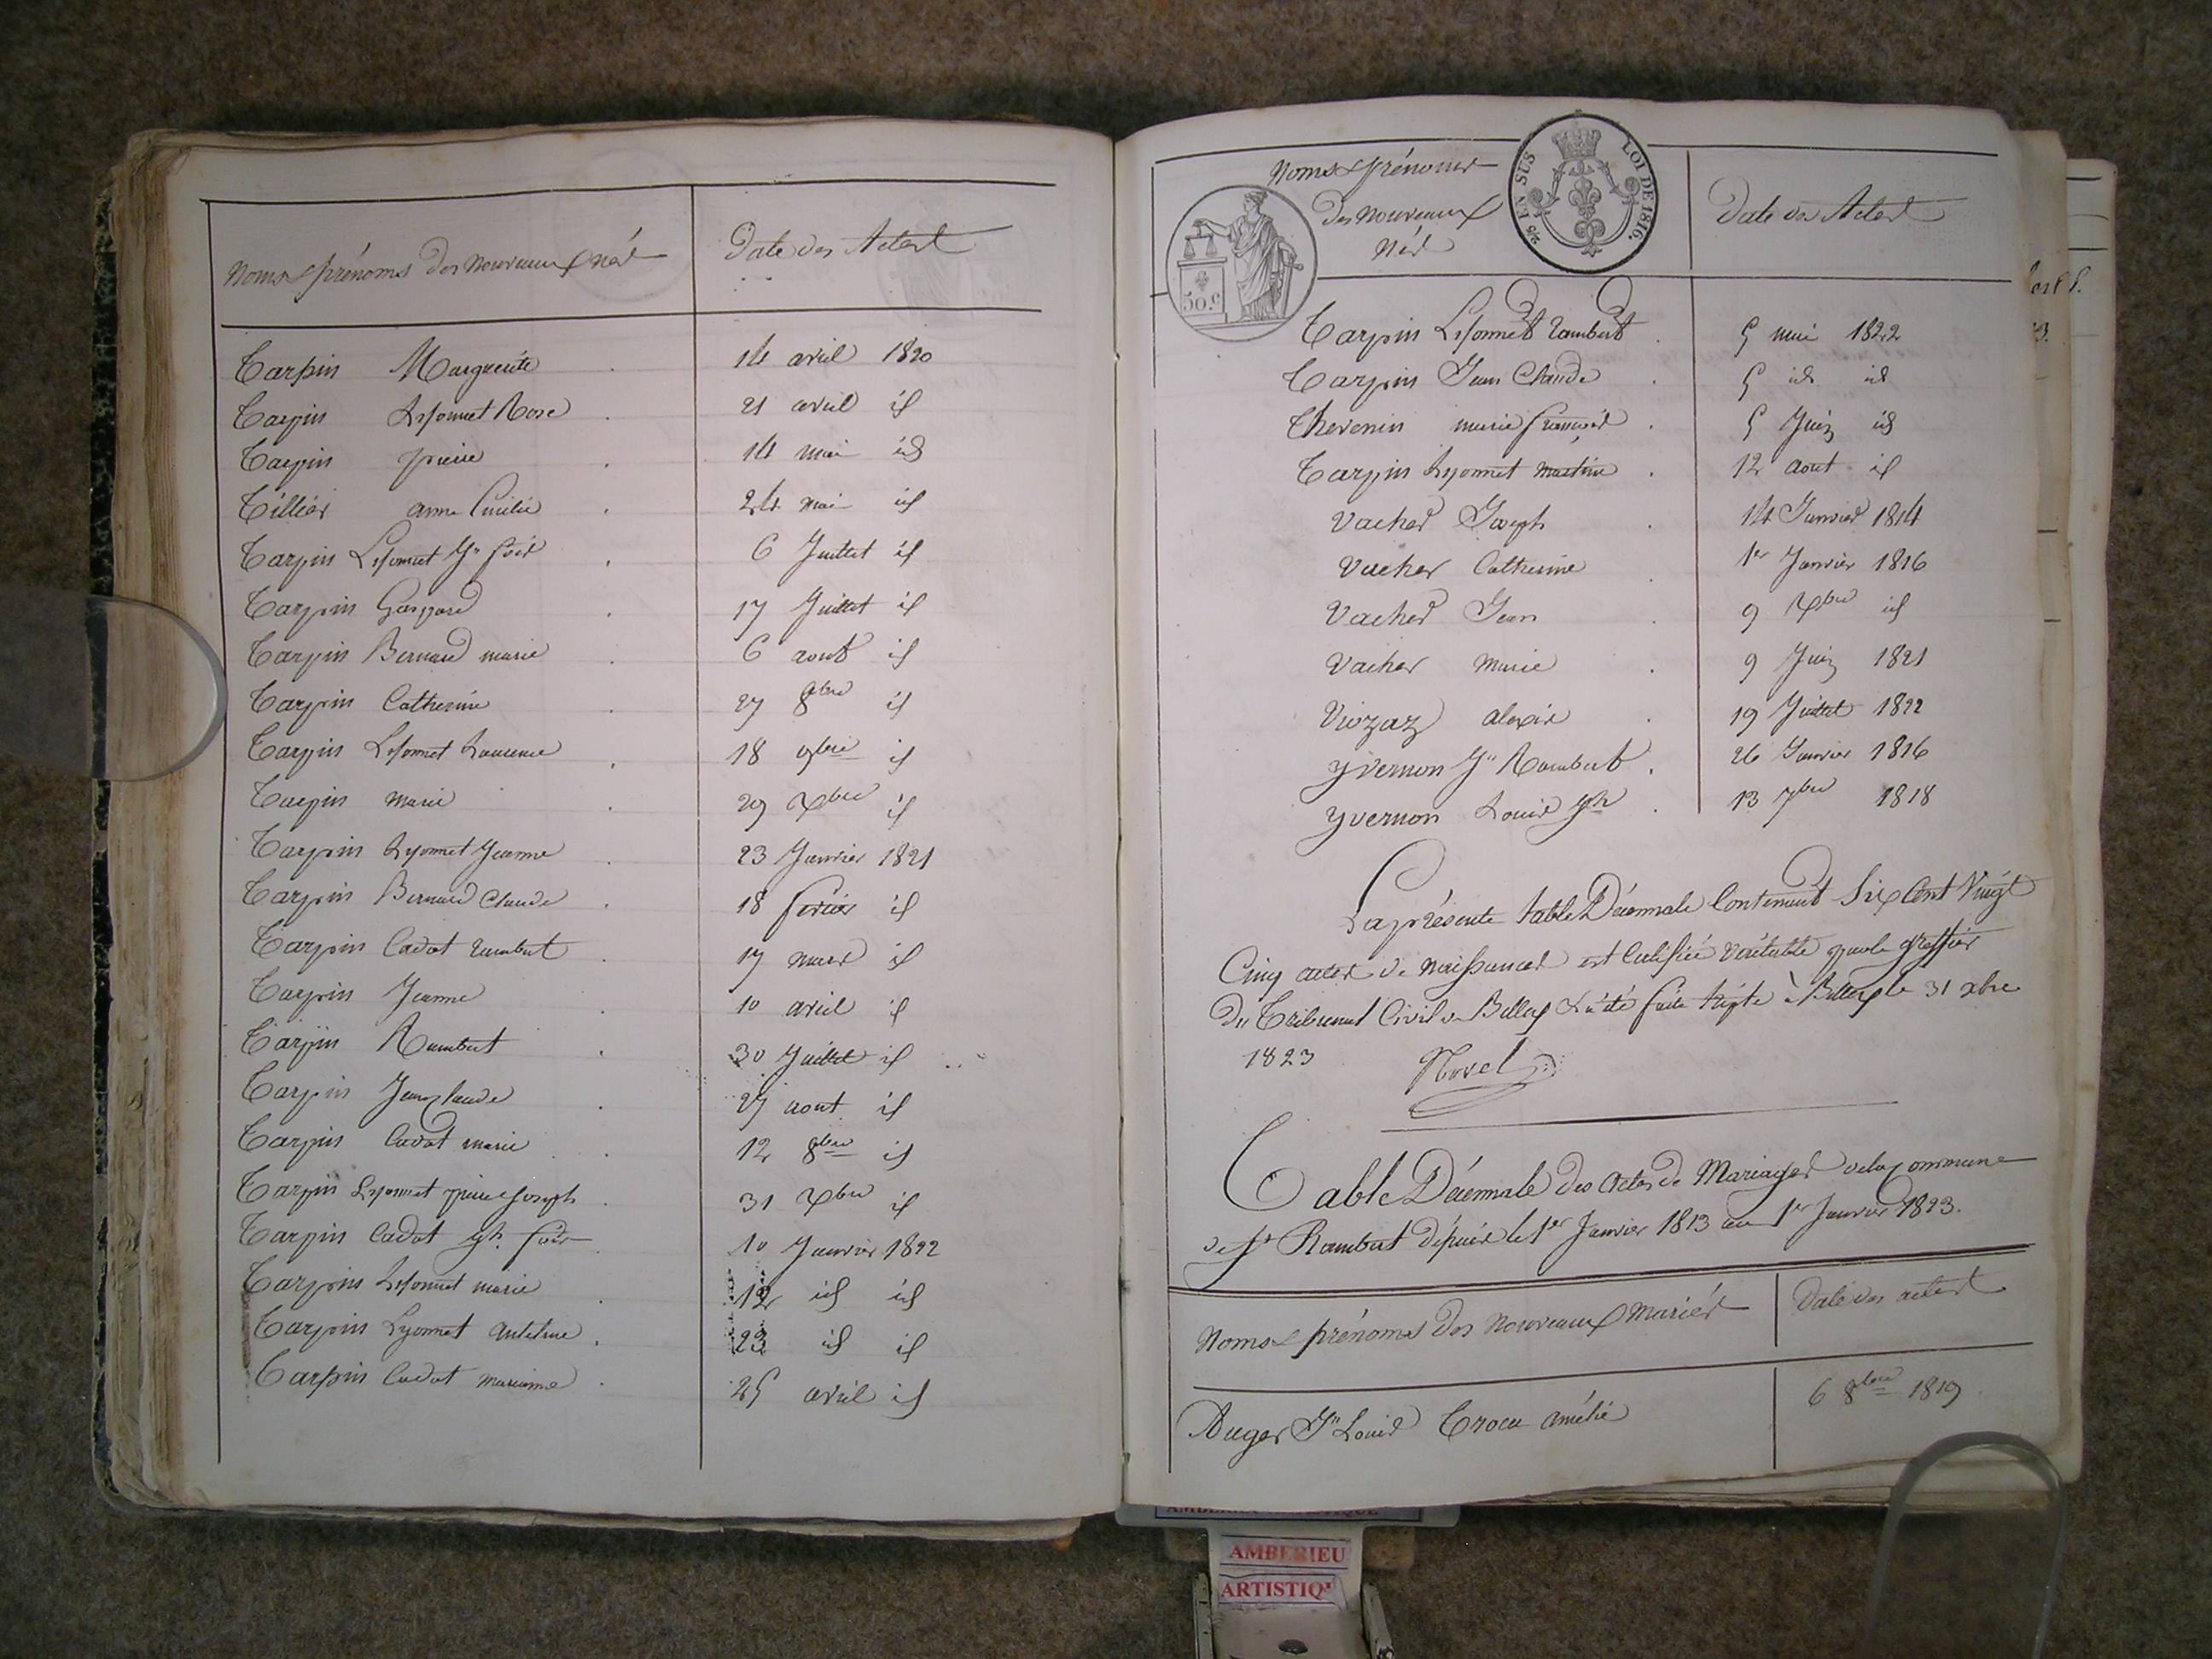 Noms & prénoms des nouveaux nés
Date des Actes
Tarpin Marguerite 14 avril 1820
Tarpin Lyonnet Rose 21 avril id
Tarpin pierre 14 mai id
Tillier anne 24 mai id
Tarpin Lyonnet Jn fois 6 Juillet id
Tarpin Gaspard 17 Juillet id
Tarpin Bernard marie 6 aout id
Tarpin Catherine 27 8bre id
Tarpin Lyonnet Laurence 18 9bre id
Tarpin marie 29 xbre id
Tarpin Lyonnet Jeanne 23 Janvier 1821
Tarpin Bernard Claude 18 fevrier id
Tarpin Cadot rambert 17 mars id
Tarpin Jeanne 10 avril id
Tarpin Rambert 30 Juillet id
Tarpin Jean claude 27 aout id
Tarpin Cadot marie 12 8bre id
Tarpin Lyonnet pierre Joseph 31 xbre id
Tarpin Cadot Jh. fois 10 Janvier 1822
Tarpin Lyonnet marie 12 id id
Tarpin Lyonnet antoine 23 id id
Tarpin Cadot marianne 25 avril id
Noms & prénoms
des nouveaux
Nés
Date des Actes
EN SUS LOI DE 1816.
50.c
Tarpin Lyonnet rambert 5 mai 1822
Tarpin Jean Claude 5 id id
Thevenin marie françois 5 Juin id
Tarpin Lyonnet martine 12 aout id
Vacher Joseph 14 Janvier 1814
Vacher Catherine 1er Janvier 1816
Vacher Jean 9 xbre id
Vacher Marie 9 Juin 1821
Viozaz alexis 19 Juillet 1822
Yvernon Jn Rambert 26 Janvier 1816
Yvernon Louis Jh 13 7bre 1818
La présente table Décennale Contenant Six Cent Vingt
Cinq actes de naissances est Certifiée véritable par le greffier
du Tribunal Civil de Belley & a été faite triple à Belley le 31 xbre
1823
Table Décennale des actes de Mariages de la Commune
de St Rambert depuis le 1er Janvier 1813 au 1er Janvier 1823.
Noms & prénoms des nouveaux Mariés
Date des actes
Auger Jn Louis Trocu amélie 6 8bre 1819
AMBERIEU
ARTISTIQ